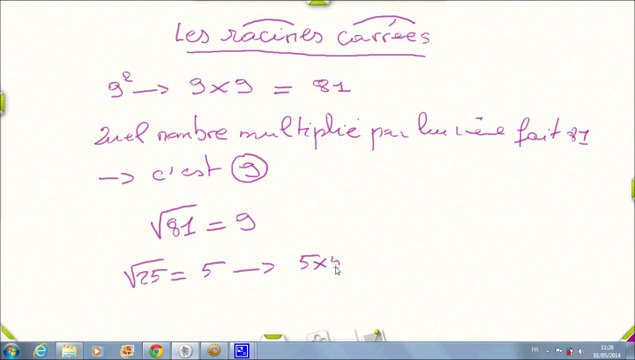 Les racines carrées
9² → 9×9 = 81
Quel nombre multiplié par lui même fait 81
→ c'est 9
√81 = 9
√25 = 5 → 5×
FR
11:28
01/05/2014